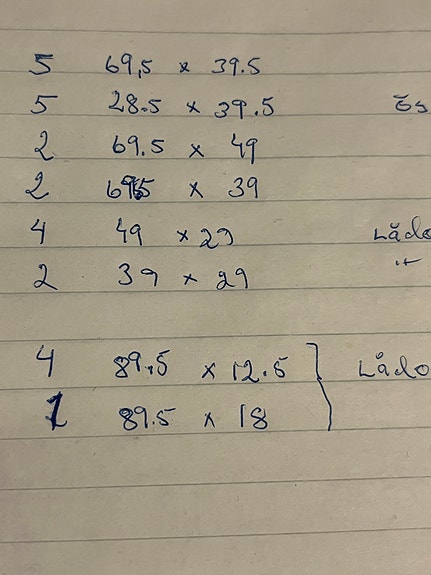 5 69,5 x 39.5
5 28.5 x 39.5
2 69.5 x 49
2 69.5 x 39
4 49 x 29
2 39 x 29
4 89.5 x 12.5
1 89.5 x 18